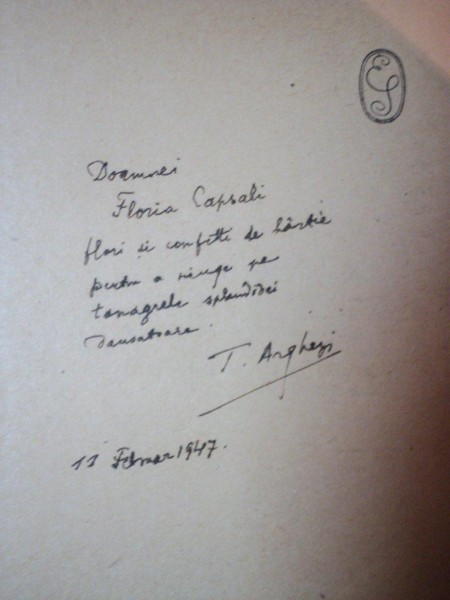 ES
Doamnei
Floria Capsali
flori și confetti de hârtie
pentru a ninge pe
tanagrele splendidei
dansatoare.
T. Arghezi
11 Februar 1947.